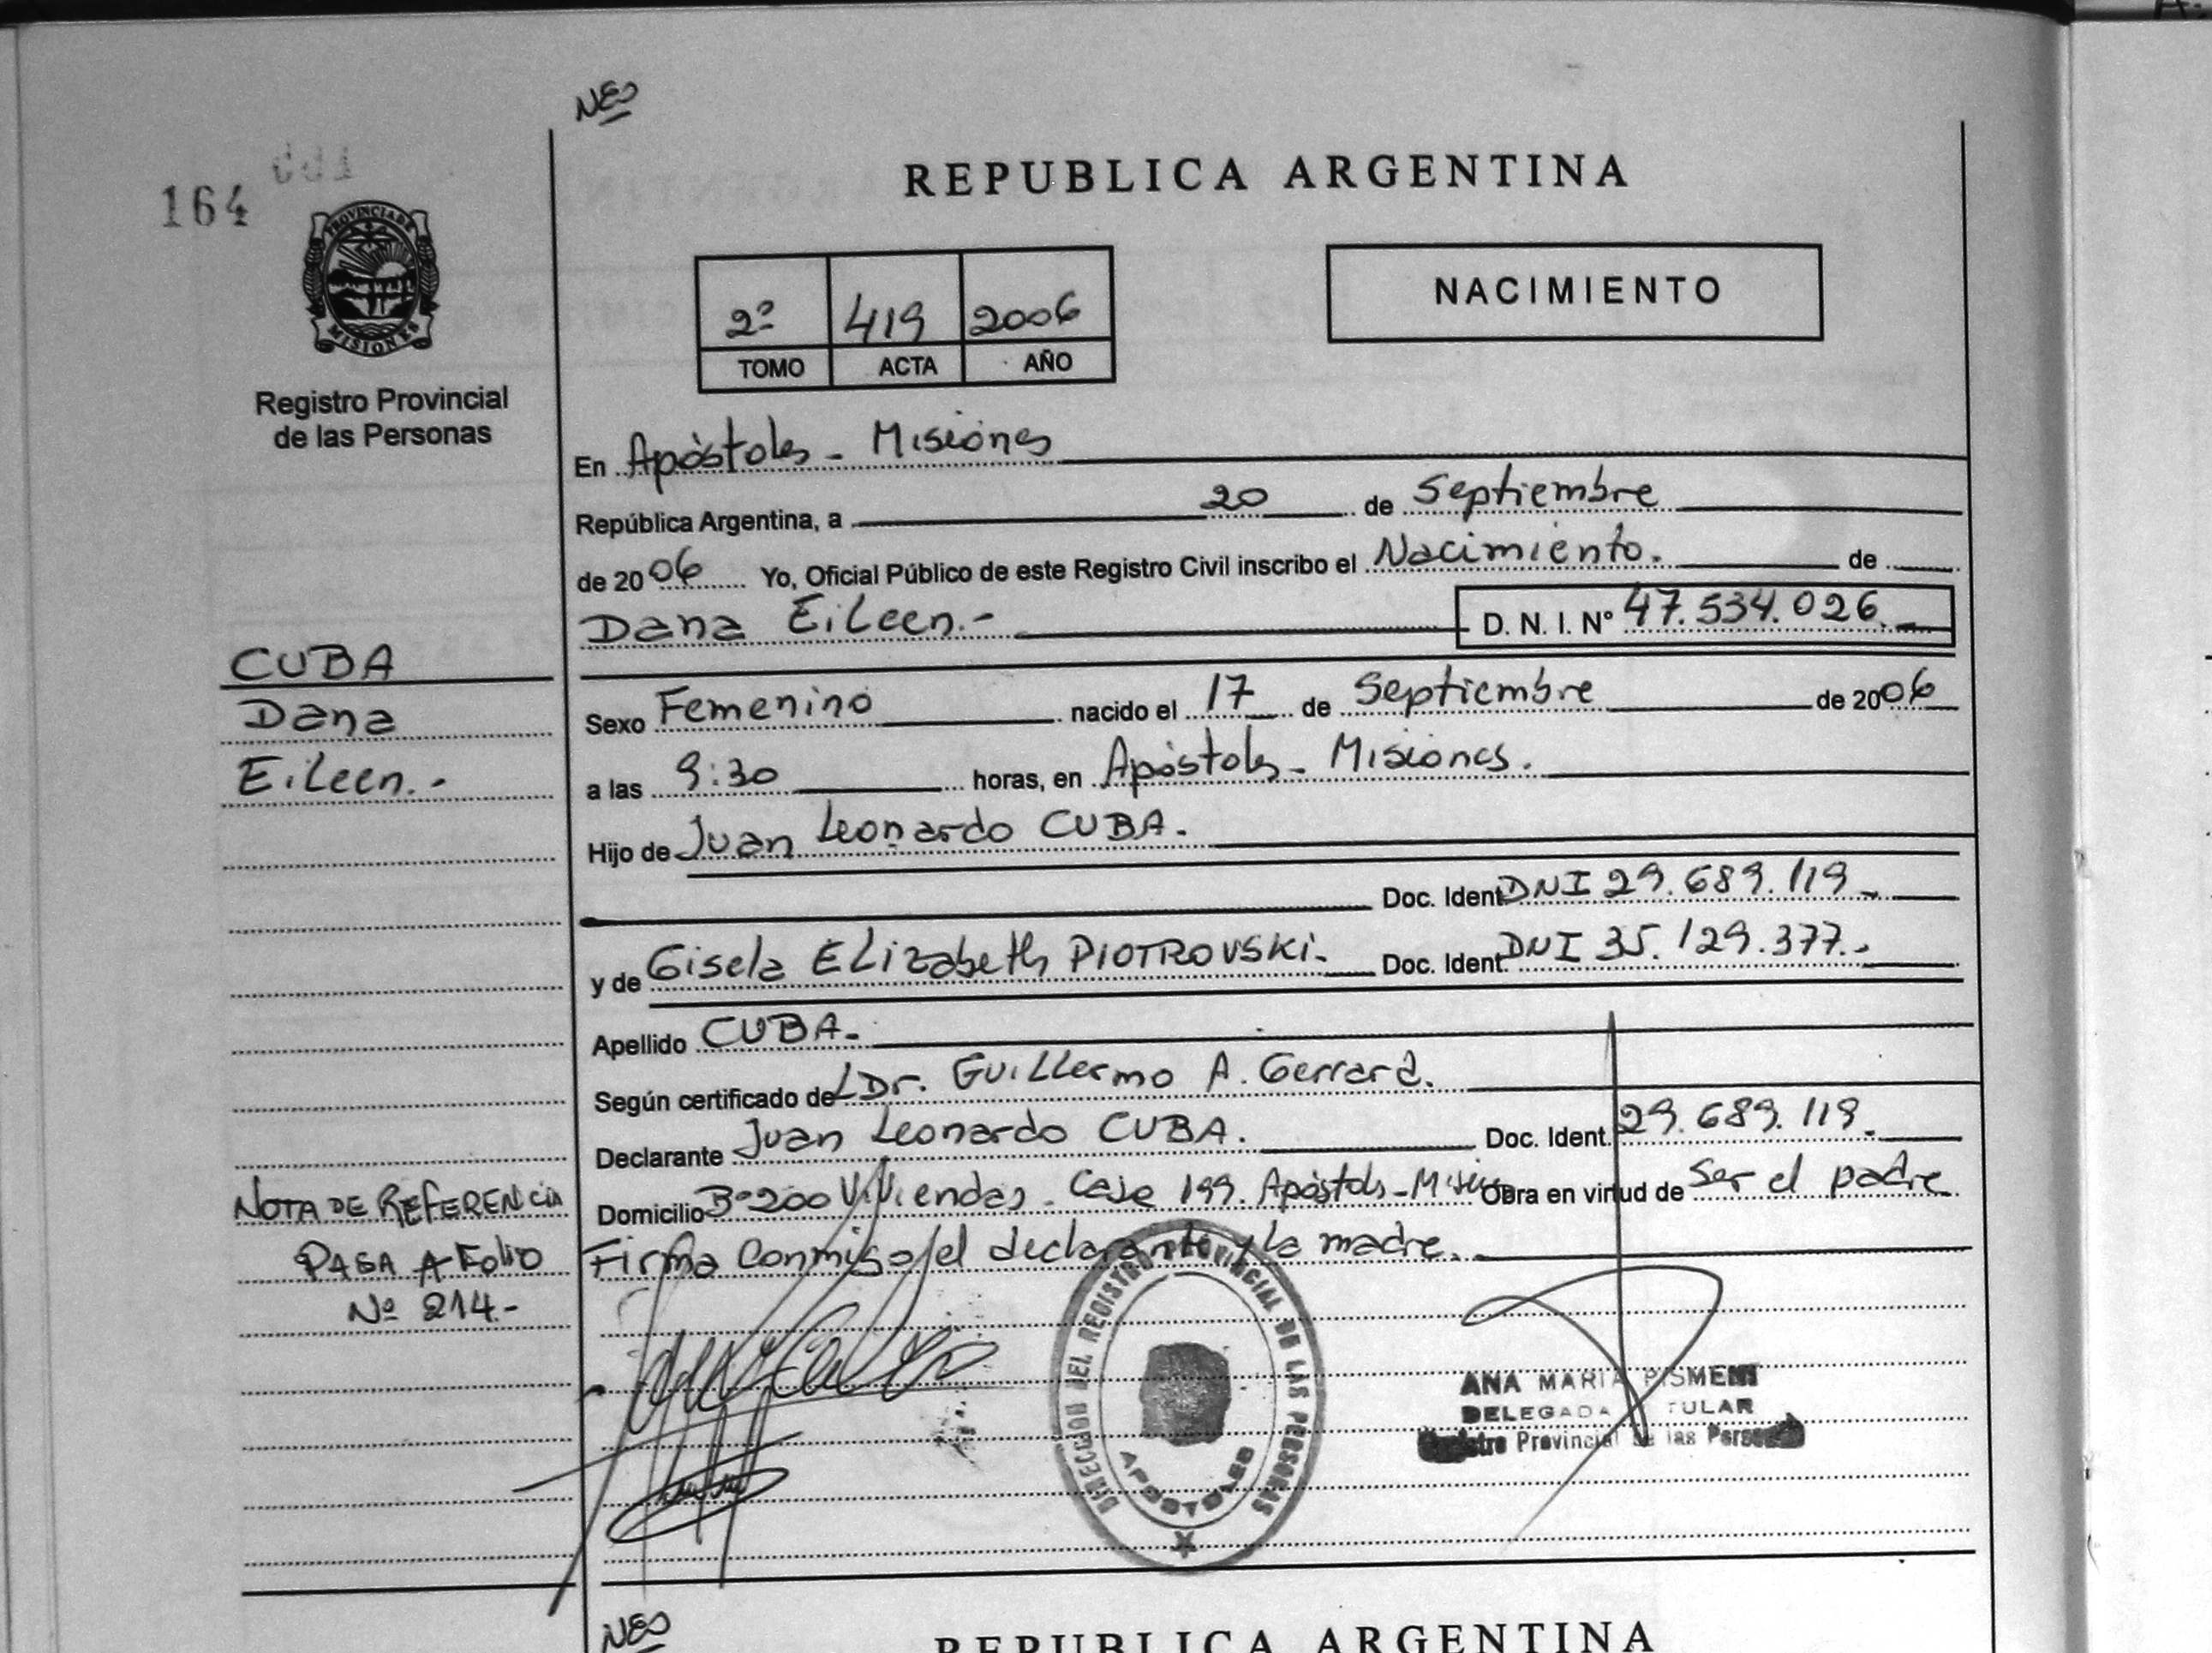 NEO
REPUBLICA ARGENTINA
164
PROVINCIA DE
MISIONES
Registro Provincial
de las Personas
2º 419 2006
TOMO ACTA AÑO
NACIMIENTO
En Apóstoles - Misiones
República Argentina, a 20 de Septiembre
de 2006 Yo, Oficial Público de este Registro Civil inscribo el Nacimiento. de
Dana Eileen.- D. N. I. Nº 47.534.026.
CUBA
Dana
Eileen.-
Sexo Femenino nacido el 17 de Septiembre de 2006
a las 9:30 horas, en Apóstoles - Misiones.
Hijo de Juan Leonardo CUBA.
Doc. Ident. DNI 29.689.119.
y de Gisela Elizabeth PIOTROVSKI. Doc. Ident. DNI 35.129.377.-
Apellido CUBA.
Según certificado del Dr. Guillermo A. Gerrard.
Declarante Juan Leonardo CUBA. Doc. Ident. 29.689.119.
Domicilio Bº 200 Viviendas - Casa 199. Apóstoles - Misiones Obra en virtud de Ser el padre
Firma conmigo el declarante y la madre.
NOTA DE REFERENCIA
PASA A FOLIO
Nº 214.-
DIRECCION DEL REGISTRO PROVINCIAL DE LAS PERSONAS
APOSTOLES
ANA MARIA PISMENI
DELEGADA TITULAR
Registro Provincial de las Personas
NEO
REPUBLICA ARGENTINA